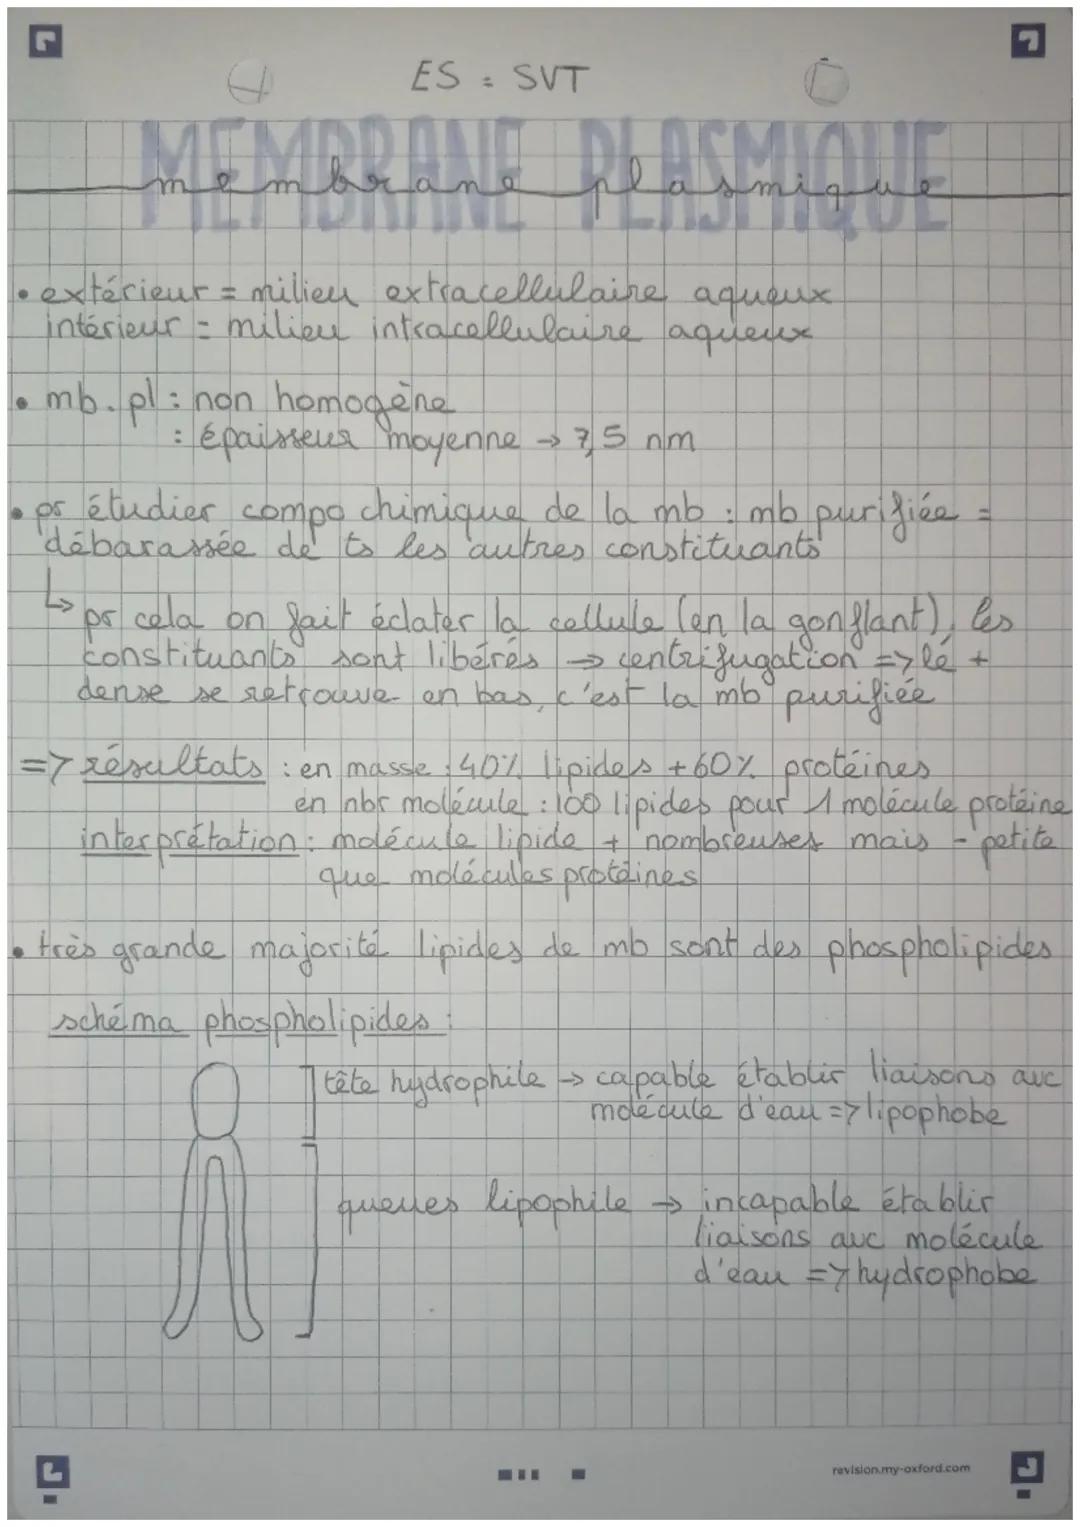 ES = SVT
MEMBRANE PLASMIQUE
membrane plasmique
• extérieur = milieu extracellulaire aqueux
intérieur = milieu intracellulaire aqueux
• mb. pl : non homogène
: épaisseur moyenne → 7,5 nm
• pr étudier compo chimique de la mb : mb purifiée =
débarassée de ts les autres constituants
↳ pr cela on fait éclater la cellule (en la gonflant), les
constituants sont libérés → centrifugation => lé +
dense se retrouve en bas, c'est la mb purifiée
=> résultats : en masse : 40% lipides + 60% protéines
en nbr molécule : 100 lipides pour 1 molécule protéine
interprétation : molécule lipide + nombreuses mais - petite
que molécules protéines
• très grande majorité lipides de mb sont des phospholipides
schéma phospholipides :
tête hydrophile → capable établir liaisons avc
molécule d'eau => lipophobe
queues lipophile → incapable établir
liaisons avc molécule
d'eau => hydrophobe
revision.my-oxford.com